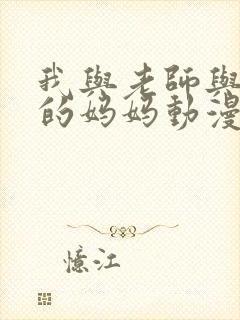 我與老師與
的媽媽動漫
憶江